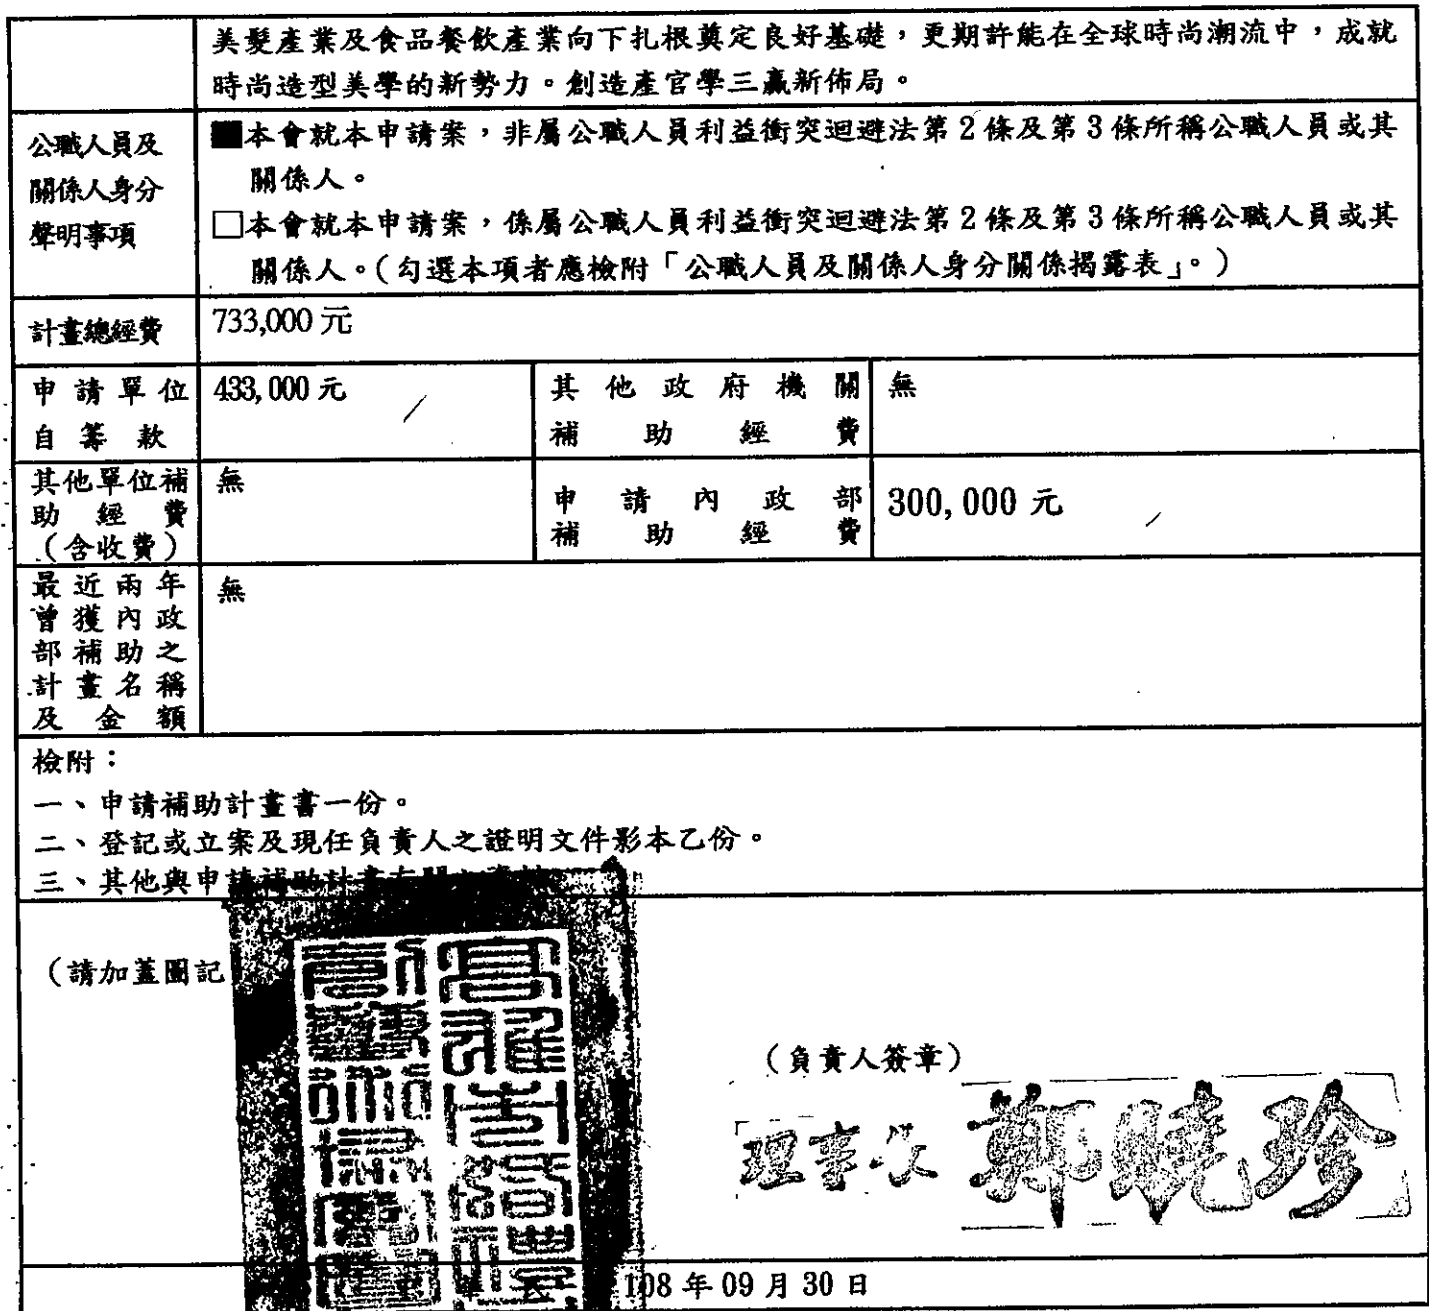 美髮產業及食品餐飲產業向下扎根奠定良好基礎，更期許能在全球時尚潮流中，成就
時尚造型美學的新勢力。創造產官學三贏新佈局。
公職人員及
關係人身分
聲明事項
■本會就本申請案，非屬公職人員利益衝突迴避法第2條及第3條所稱公職人員或其
關係人。
□本會就本申請案，係屬公職人員利益衝突迴避法第2條及第3條所稱公職人員或其
關係人。(勾選本項者應檢附「公職人員及關係人身分關係揭露表」。)
計畫總經費
733,000元
申請單位
自籌款
433,000元
其他政府機關
補助經費
無
其他單位補
助經費
(含收費)
無
申請內政部
補助經費
300,000元
最近兩年
曾獲內政
部補助之
計畫名稱
及金額
無
檢附：
一、申請補助計畫書一份。
二、登記或立案及現任負責人之證明文件影本乙份。
三、其他與申請補助計畫有關
(請加蓋圖記
(負責人簽章)
理事長 鄭曉珍
108年09月30日